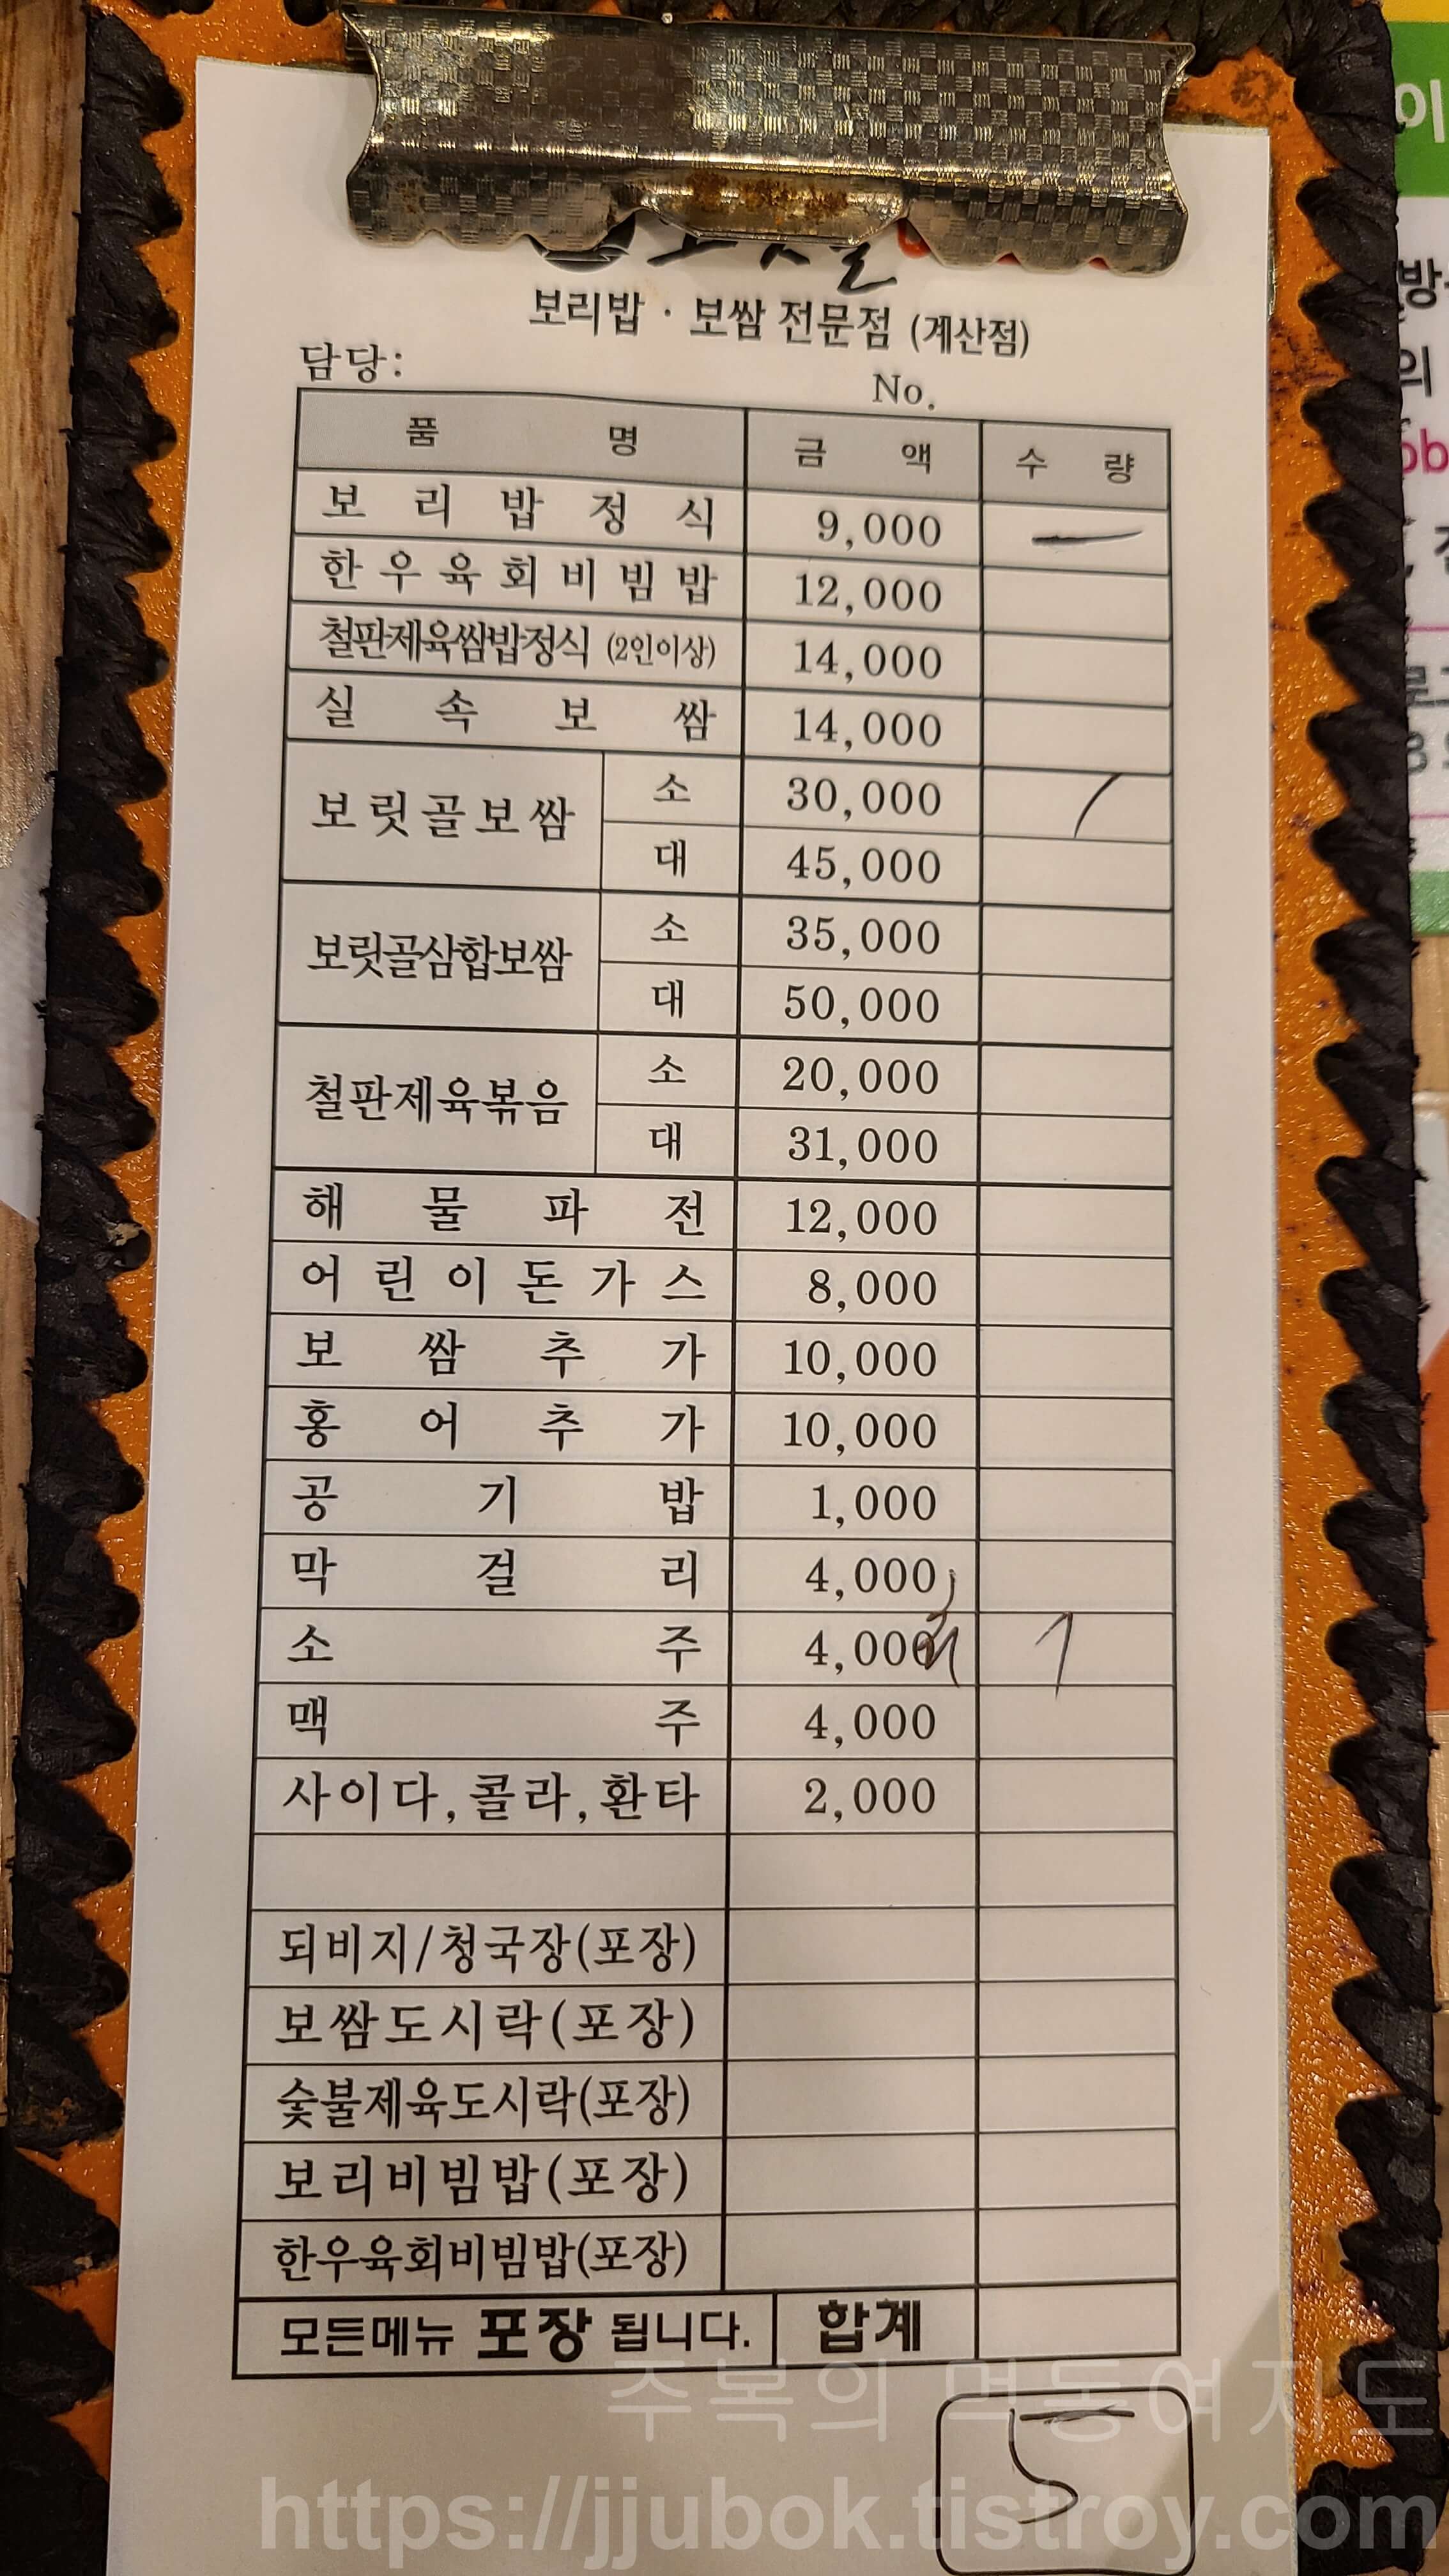 보리밥 · 보쌈 전문점 (계산점)
담당:
No.
품 명 금 액 수 량
보리밥정식 9,000 一
한우육회비빔밥 12,000
철판제육쌈밥정식 (2인이상) 14,000
실속보쌈 14,000
보릿골보쌈 소 30,000 /
대 45,000
보릿골삼합보쌈 소 35,000
대 50,000
철판제육볶음 소 20,000
대 31,000
해물파전 12,000
어린이돈가스 8,000
보쌈추가 10,000
홍어추가 10,000
공기밥 1,000
막걸리 4,000
소주 4,000 1
맥주 4,000
사이다,콜라,환타 2,000
되비지/청국장(포장)
보쌈도시락(포장)
숯불제육도시락(포장)
보리비빔밥(포장)
한우육회비빔밥(포장)
모든메뉴 포장 됩니다. 합계
5
주복의 먹동여지도
https://jjubok.tistroy.com